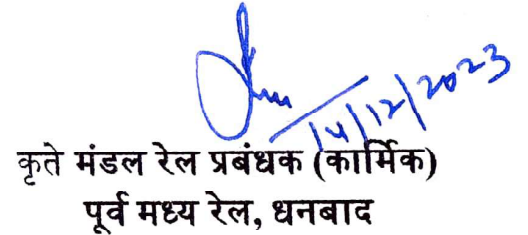 14/12/2023
कृते मंडल रेल प्रबंधक (कार्मिक)
पूर्व मध्य रेल, धनबाद